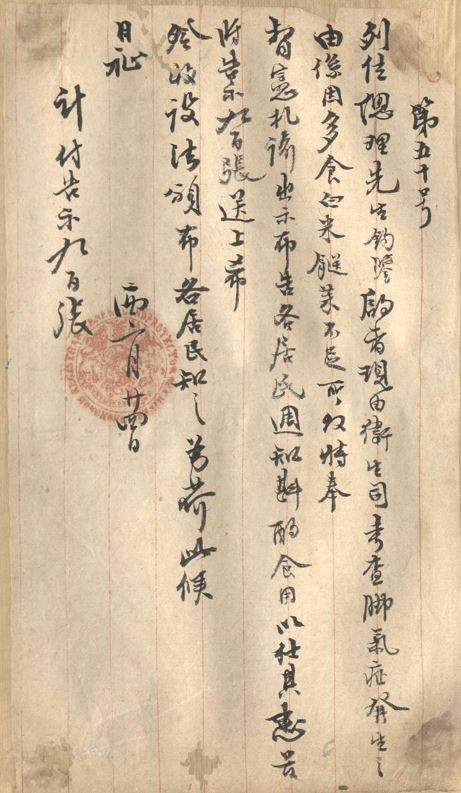 第五十号
列位總理先生鈞鑒啟者現由衛生司考查脚氣症發生之
由係因多食白米餸菜不足所致特奉
智憲札諭出示布告各居民週知斟酌食用以杜其患茲
將告示九百張送上希
發收設法頒布各居民知之為荷此候
日祉
西六月廿四日
計付告示九百張